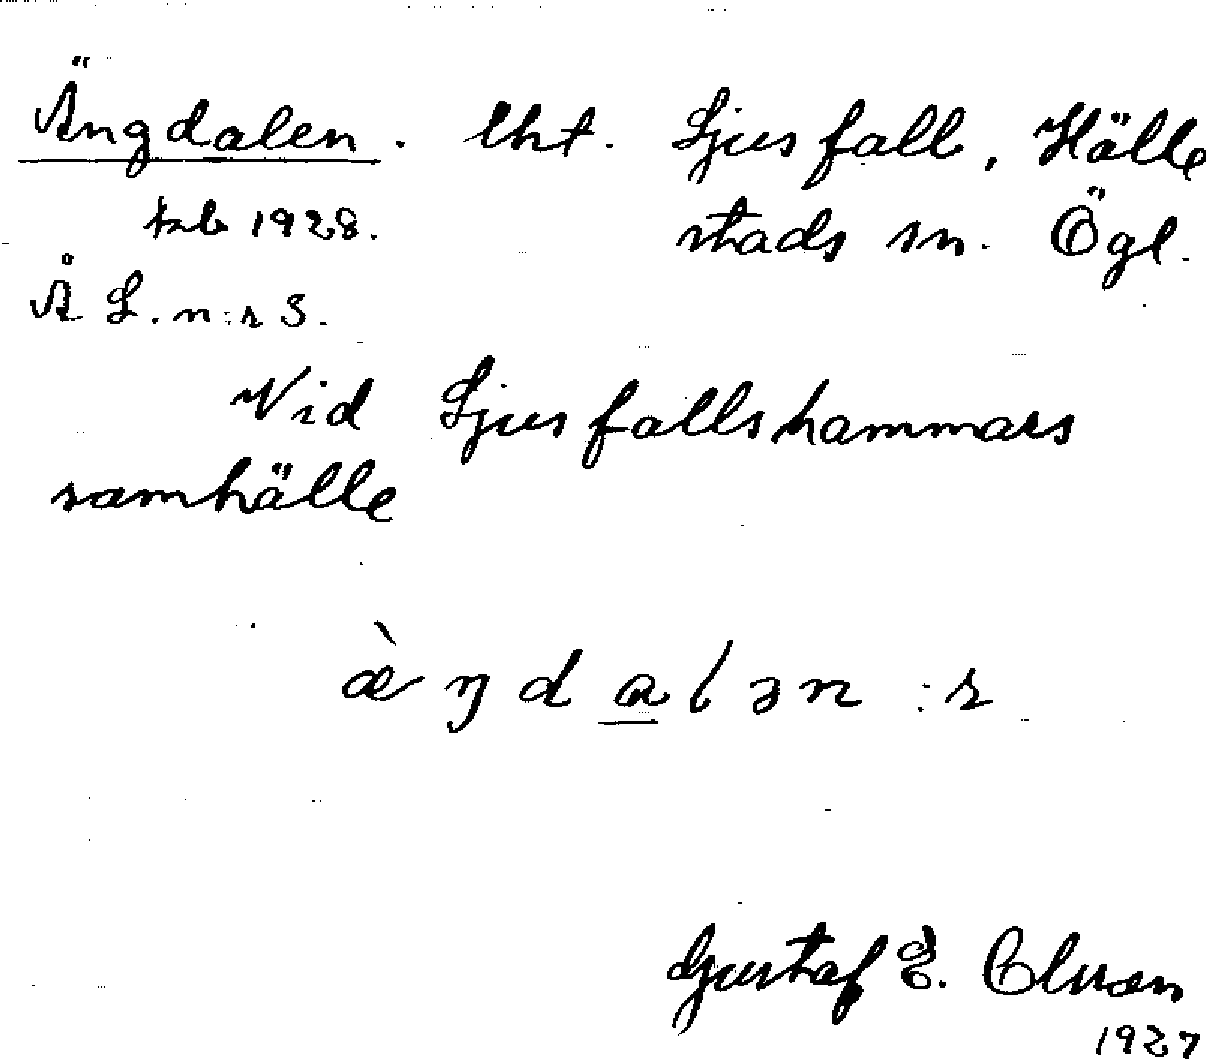 Ängdalen. lht. Ljusfall, Hälle
tab 1928. stads sn. Ögl.
Å L. n:r 3.
Vid Ljusfallshammars
samhälle
æ̀ŋdalən :r
Gustaf E.
1927